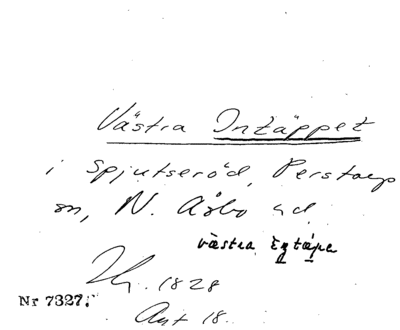 Västra Intäppet
i Spjutseröd, Perstorps
sn, N. Åsbo hd
västra
1828
Nr 7327.
Akt 18.